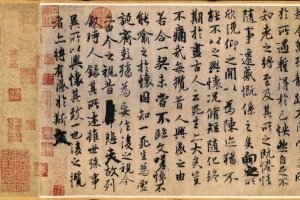 所遇蹔得於己怏然自足不
知老之將至及其所之既惓情
隨事遷感慨係之矣向之所
欣俛仰之閒以為陳迹猶不
能不以之興懷況脩短隨化終
期於盡古人云死生亦大矣豈
不痛哉每攬昔人興感之由
若合一契未嘗不臨文嗟悼不
能喻之於懷固知一死生為虛
誕齊彭殤為妄作後之視今
亦由今之視昔悲夫故列
敘時人錄其所述雖世殊事
異所以興懷其致一也後之攬
者亦將有感於斯文